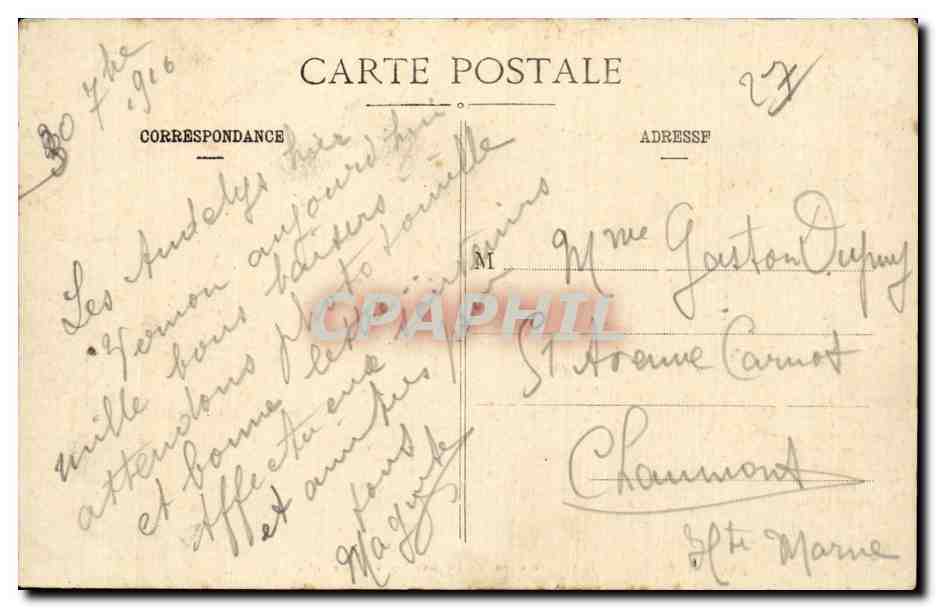 CARTE POSTALE
CORRESPONDANCE
ADRESSE
30 7bre
1916
27
Les Andelys hier
Vernon aujourd'hui
mille bons baisers
attendons photo famille
et bonne lettre
Affectueux souvenirs
et amitiés pour
tous
M
Mme Gaston Dupuy
51 Avenue Carnot
Chaumont
Hte Marne
CPAPHIL